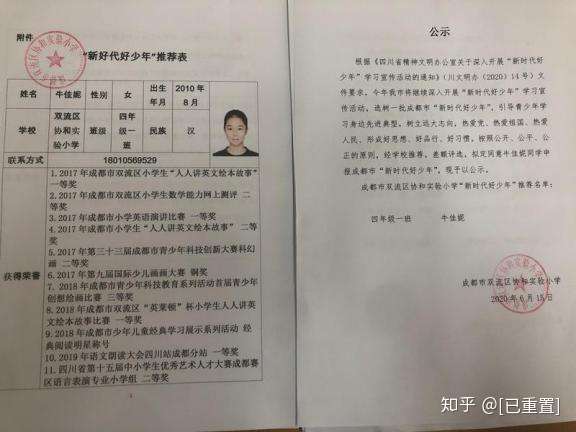 附件
"新好代好少年"推荐表
姓名 牛佳妮 性别 女 出生年月 2010年8月
学校 双流区协和实验小学 班级 四年级一班 民族 汉
联系方式 18010569529
获得荣誉
1. 2017年成都市双流区小学生"人人讲英文绘本故事"
一等奖
2. 2017年成都市双流区小学生数学能力网上测评 二
等奖
3. 2017年成都市小学英语演讲比赛 一等奖
4. 2017年成都市小学生"人人讲英文绘本故事" 二等
奖
5. 2017年第三十三届成都市青少年科技创新大赛科幻
画 二等奖
6. 2017年第九届国际少儿画画大赛 铜奖
7. 2018年成都市青少年科技教育系列活动首届青少年
创想绘画比赛 三等奖
8. 2018年成都市双流区"英莱顿"杯小学生人人讲英
文绘本故事比赛 一等奖
9. 2018年成都市少年儿童经典学习展示系列活动 经
典阅读明星称号
10. 2019年语文朗读大会四川站成都分站 一等奖
11. 四川省第十五届中小学生优秀艺术人才大赛成都赛
区语言表演专业小学组 二等奖
公示
根据《四川省精神文明办公室关于深入开展"新时代好
少年"学习宣传活动的通知》(川文明办(2020)14号)文
件要求,今年我市将继续深入开展"新时代好少年"学习宣
传活动,选树一批成都市"新时代好少年",引导青少年学
习身边先进典型,树立远大志向,热爱党、热爱祖国、热爱
人民、形成好思想、好品行、好习惯。按照公开、公平、公
正的原则,经学校推荐、差额评选,拟定同意牛佳妮同学申
报成都市"新时代好少年"。现予以公示。
成都市双流区协和实验小学"新时代好少年"推荐名单:
四年级一班 牛佳妮
成都市双流区协和实验小学
2020年6月15日
知乎 @[已重置]